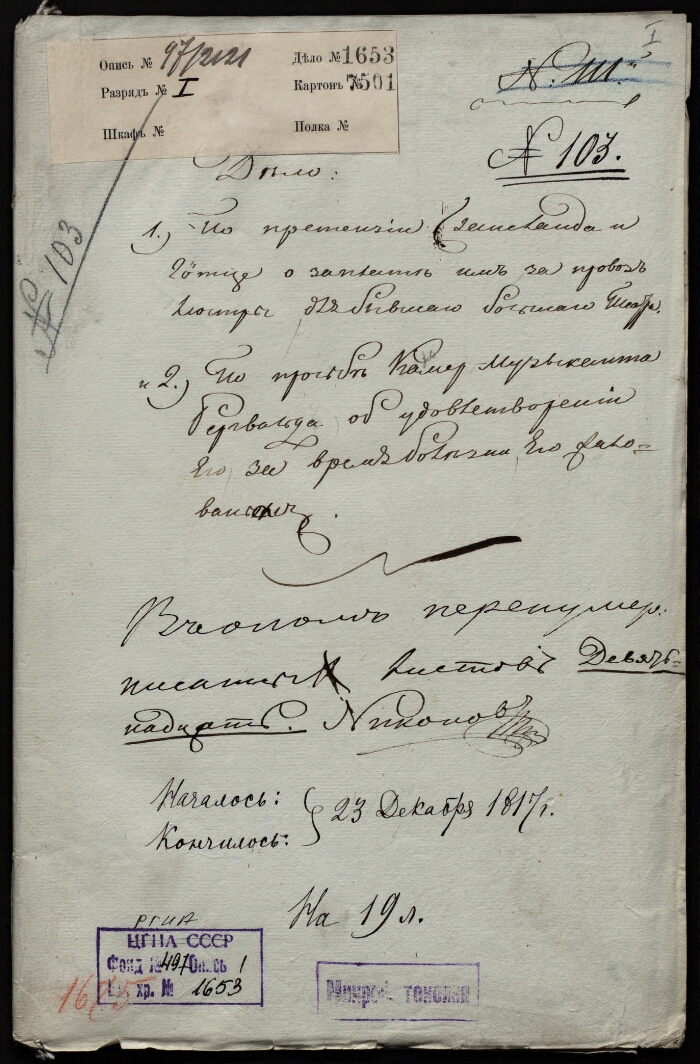 I
Опись № 97/2121
Дѣло № 1653
Разрядъ № I
Картонъ № 7501
Шкафъ №
Полка №
№ 103.
№ 103
Дѣло:
1.) По претензіи и
о заплатѣ имъ за провозъ
люстры для бывшаго большаго Театра.
и 2.) По прозьбѣ Камер Музыканта
Бервальда об удовлетвореніи
Его за время болѣзни Его
жало-
ваньемъ.
перенумер.
листовъ Девят-
надцать. Никоновъ
Началось:
Кончилось:
23 Декабря 1817 г.
На 19 л.
РГИА
ЦГИА СССР
Фонд № 497 Опись 1
Ед. хр. № 1653